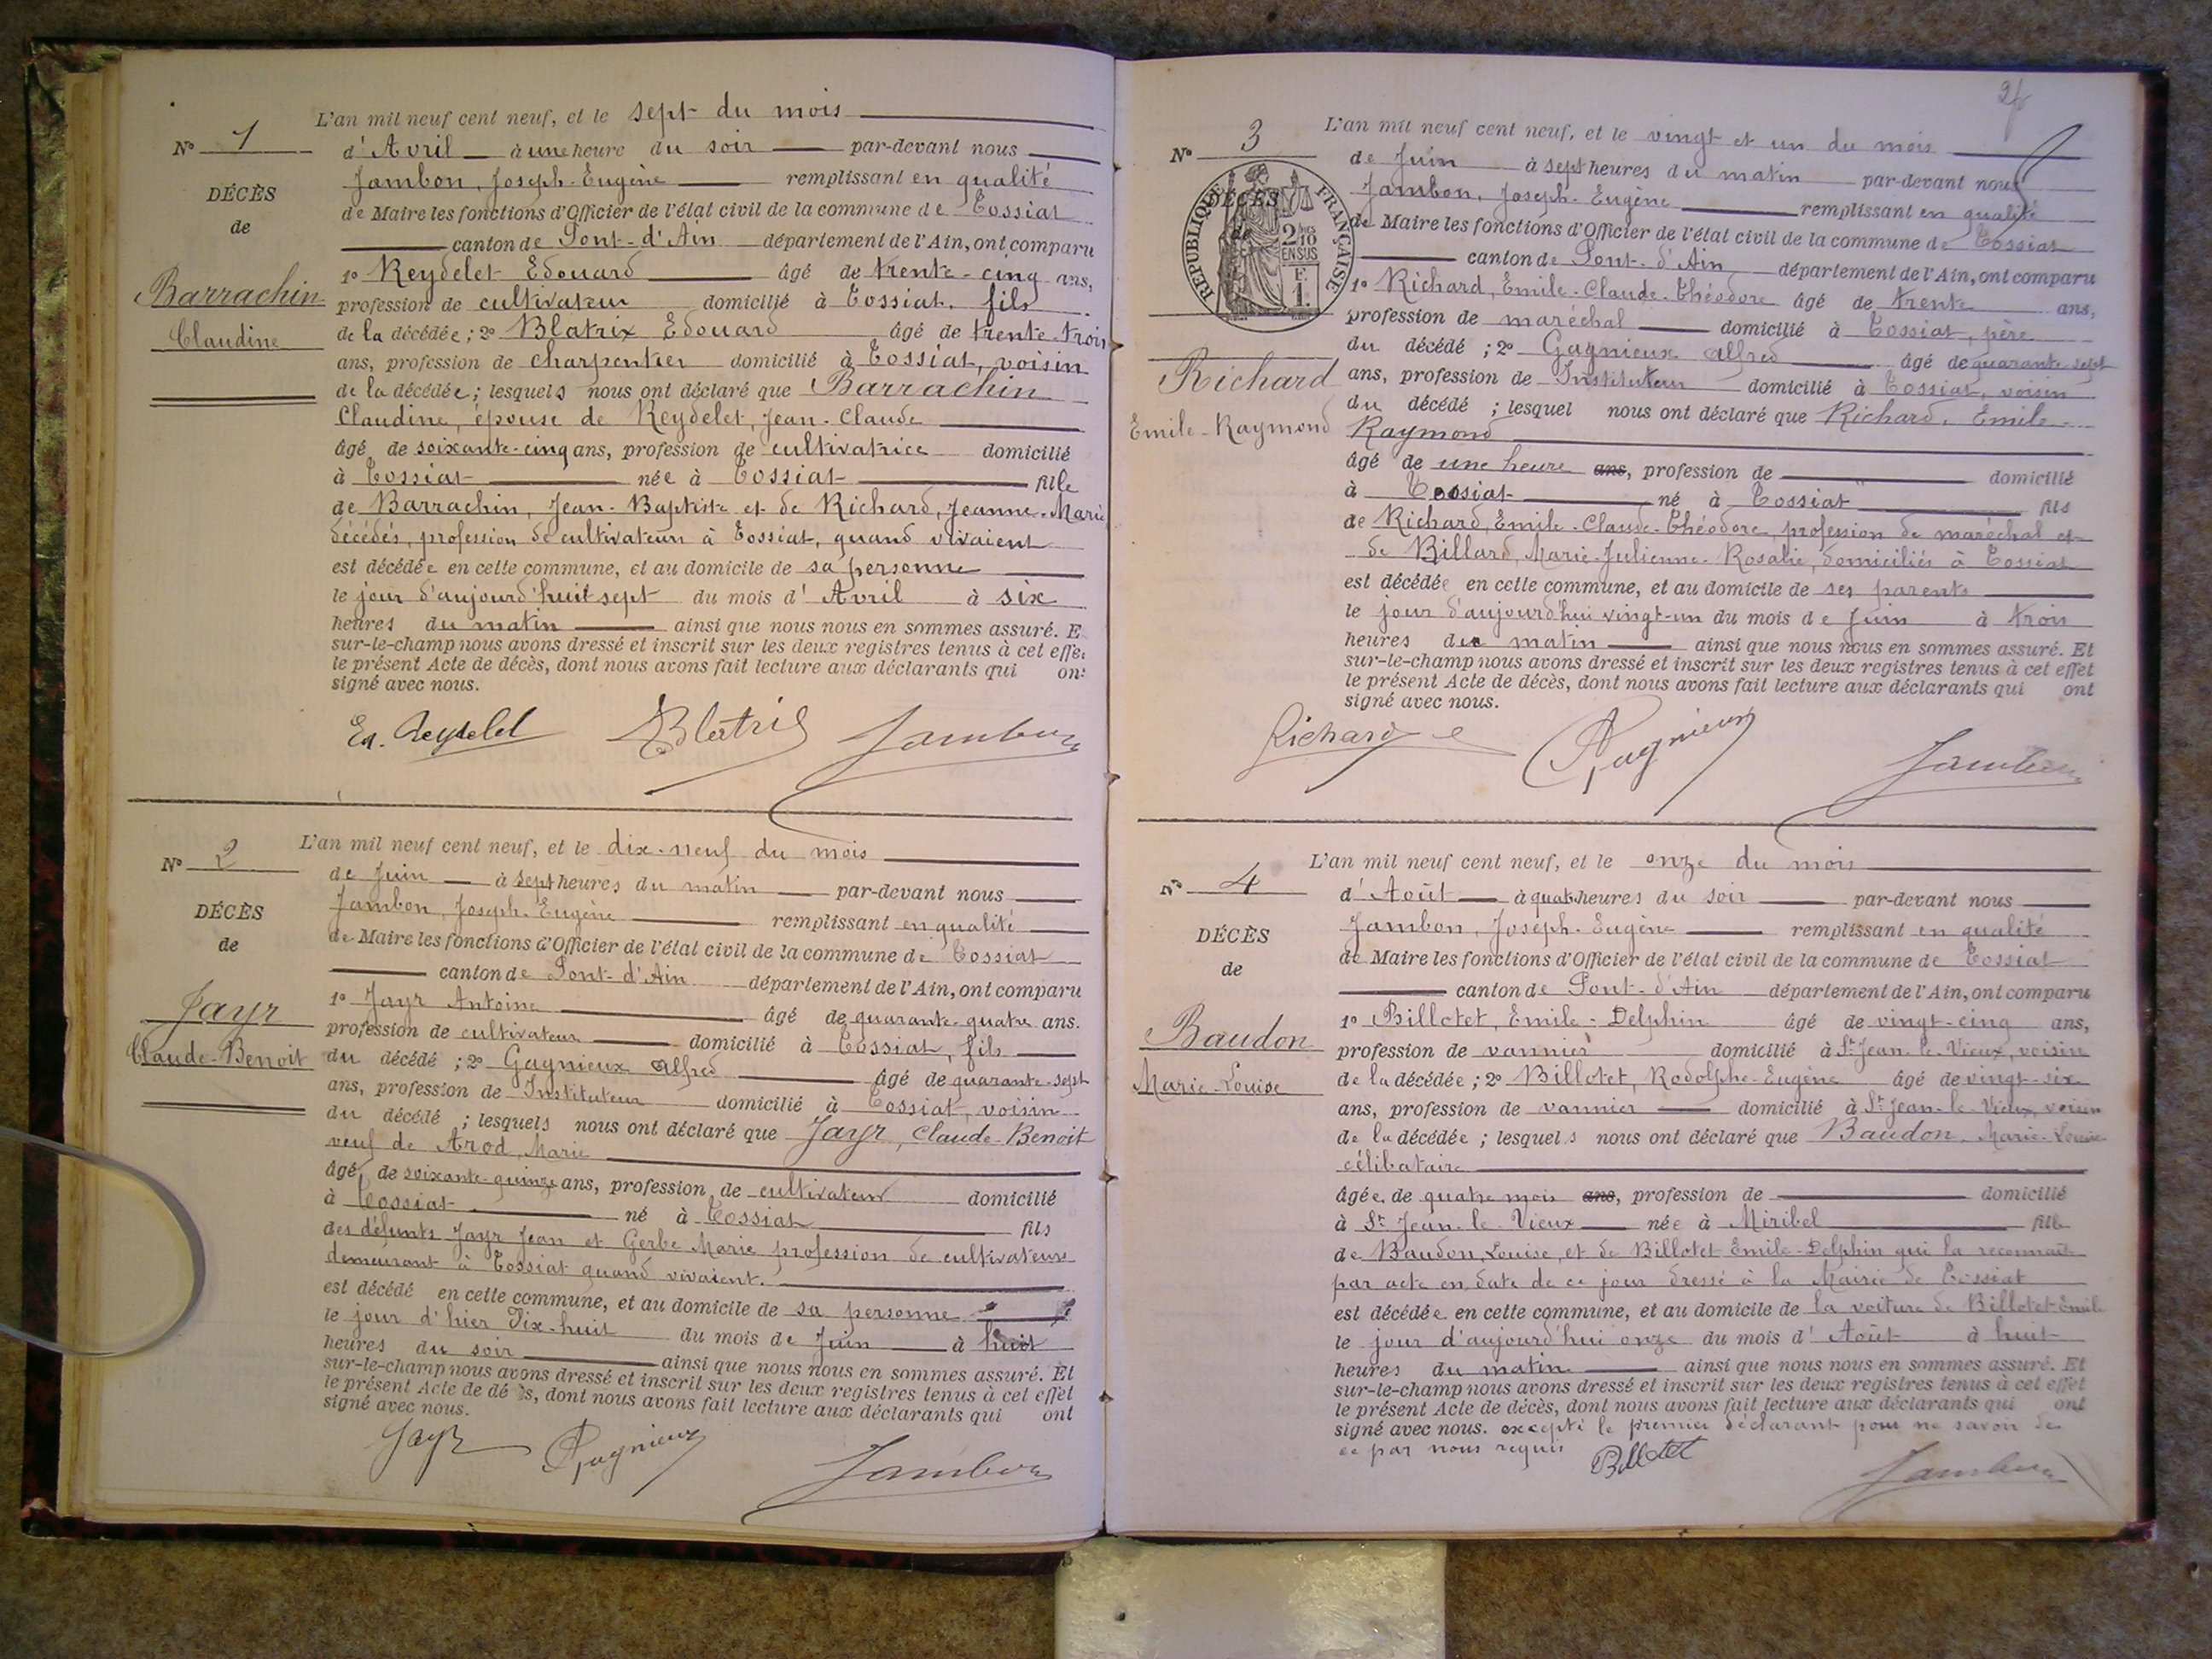 L'an mil neuf cent neuf, et le sept du mois
N° 1
d'Avril à une heure du soir par-devant nous
Jambon, Joseph-Eugène remplissant en qualité
DÉCÈS
de Maire les fonctions d'Officier de l'état civil de la commune de Tossiat
de
canton de Pont-d'Ain département de l'Ain, ont comparu
1° Reydelet Edouard âgé de trente-cinq ans,
Barrachin
profession de cultivateur domicilié à Tossiat, fils
Claudine
de la décédée ; 2° Blatrix Edouard âgé de trente-trois
ans, profession de charpentier domicilié à Tossiat, voisin
de la décédée ; lesquels nous ont déclaré que Barrachin
Claudine, épouse de Reydelet, Jean-Claude
âgé de soixante-cinq ans, profession de cultivatrice domicilié
à Tossiat née à Tossiat fille
de Barrachin, Jean-Baptiste et de Richard, Jeanne-Marie
décédés, profession de cultivateurs à Tossiat, quand vivaient
est décédée en cette commune, et au domicile de sa personne
le jour d'aujourd'huit sept du mois d'Avril à six
heures du matin ainsi que nous nous en sommes assuré. E
sur-le-champ nous avons dressé et inscrit sur les deux registres tenus à cet effe
le présent Acte de décès, dont nous avons fait lecture aux déclarants qui on
signé avec nous.
Ed. Reydelet Blatrix Jambon
L'an mil neuf cent neuf, et le dix-neuf du mois
N° 2
de Juin à sept heures du matin par-devant nous
Jambon, Joseph-Eugène remplissant en qualité
DÉCÈS
de Maire les fonctions d'Officier de l'état civil de la commune de Tossiat
de
canton de Pont-d'Ain département de l'Ain, ont comparu
1° Jayr Antoine âgé de quarante-quatre ans.
Jayr
profession de cultivateur domicilié à Tossiat, fils
Claude-Benoit
du décédé ; 2° Gagnieux Alfred âgé de quarante-sept
ans, profession de Instituteur domicilié à Tossiat, voisin
du décédé ; lesquels nous ont déclaré que Jayr, Claude-Benoit
veuf de Arod, Marie
âgé de soixante-quinze ans, profession de cultivateur domicilié
à Tossiat né à Tossiat fils
des défunts Jayr Jean et Gerbe Marie profession de cultivateurs
demeurant à Tossiat quand vivaient.
est décédé en cette commune, et au domicile de sa personne
le jour d'hier Dix-huit du mois de Juin à huit
heures du soir ainsi que nous nous en sommes assuré. Et
sur-le-champ nous avons dressé et inscrit sur les deux registres tenus à cet effet
le présent Acte de dé s, dont nous avons fait lecture aux déclarants qui ont
signé avec nous.
Jayr Gagnieux Jambon
L'an mil neuf cent neuf, et le vingt et un du mois
N° 3
de Juin à sept heures du matin par-devant nous
Jambon, Joseph-Eugène remplissant en qualité
DÉCÈS
RÉPUBLIQUE FRANÇAISE
2/10 EN SUS
F. 1.
de Maire les fonctions d'Officier de l'état civil de la commune de Tossiat
canton de Pont-d'Ain département de l'Ain, ont comparu
1° Richard, Emile-Claude-Théodore âgé de trente ans,
profession de maréchal domicilié à Tossiat, père
du décédé ; 2° Gagnieux Alfred âgé de quarante sept
Richard
ans, profession de Instituteur domicilié à Tossiat, voisin
Emile-Raymond
du décédé ; lesquel nous ont déclaré que Richard, Emile-
Raymond
âgé de une heure ans, profession de domicilié
à Tossiat né à Tossiat fils
de Richard, Emile-Claude-Théodore, profession de maréchal et
de Billard, Marie-Julienne-Rosalie, domiciliés à Tossiat
est décédée en cette commune, et au domicile de ses parents
le jour d'aujourd'hui vingt-un du mois de Juin à trois
heures du matin ainsi que nous nous en sommes assuré. Et
sur-le-champ nous avons dressé et inscrit sur les deux registres tenus à cet effet
le présent Acte de décès, dont nous avons fait lecture aux déclarants qui ont
signé avec nous.
Richard e Gagnieux Jambon
L'an mil neuf cent neuf, et le onze du mois
N° 4
d'Août à quatre heures du soir par-devant nous
Jambon, Joseph-Eugène remplissant en qualité
DÉCÈS
de Maire les fonctions d'Officier de l'état civil de la commune de Tossiat
de
canton de Pont-d'Ain département de l'Ain, ont comparu
1° Billotet, Emile-Delphin âgé de vingt-cinq ans,
Baudon
profession de vannier domicilié à St Jean-le-Vieux, voisin
Marie-Louise
de la décédée ; 2° Billotet, Rodolphe-Eugène âgé de vingt-six
ans, profession de vannier domicilié à St Jean-le-Vieux, voisin
de la décédée ; lesquels nous ont déclaré que Baudon, Marie-Louise
célibataire
âgée de quatre mois ans, profession de domicilié
à St Jean-le-Vieux née à Miribel fille
de Baudon, Louise, et de Billotet Emile-Delphin qui la reconnait
par acte en date de ce jour dressé à la Mairie de Tossiat
est décédée en cette commune, et au domicile de la voiture de Billotet Emile
le jour d'aujourd'hui onze du mois d'Août à huit
heures du matin ainsi que nous nous en sommes assuré. Et
sur-le-champ nous avons dressé et inscrit sur les deux registres tenus à cet effet
le présent Acte de décès, dont nous avons fait lecture aux déclarants qui ont
signé avec nous. excepté le premier déclarant pour ne savoir de
ce par nous requis
Billotet Jambon